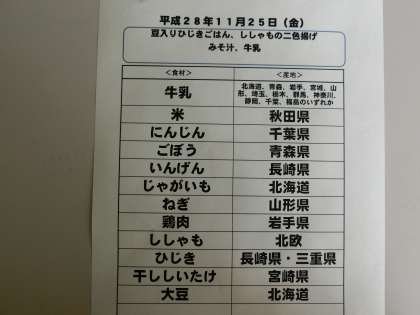 平成28年11月25日（金）
豆入りひじきごはん、ししゃもの二色揚げ
みそ汁、牛乳
＜食材＞ ＜産地＞
牛乳 北海道、青森、岩手、宮城、山
形、埼玉、栃木、群馬、神奈川、
静岡、千葉、福島のいずれか
米 秋田県
にんじん 千葉県
ごぼう 青森県
いんげん 長崎県
じゃがいも 北海道
ねぎ 山形県
鶏肉 岩手県
ししゃも 北欧
ひじき 長崎県・三重県
干ししいたけ 宮崎県
大豆 北海道